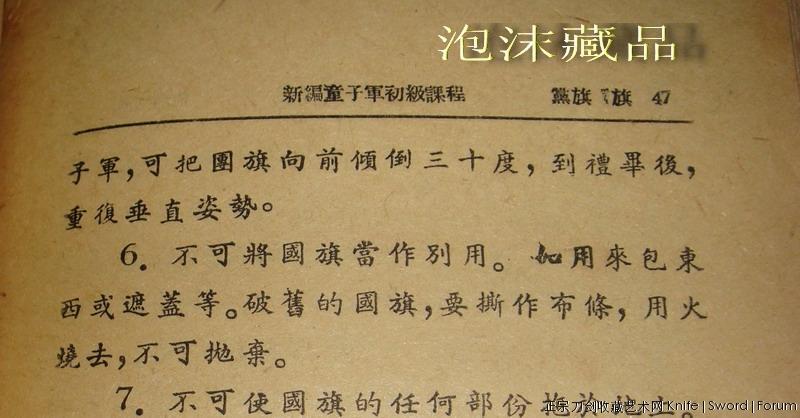 泡沫藏品
新編童子軍初級課程 黨旗 旗 47
子軍，可把團旗向前傾倒三十度，到禮畢後，
重復垂直姿勢。
6. 不可將國旗當作別用。如用來包東
西或遮蓋等。破舊的國旗，要撕作布條，用火
燒去，不可拋棄。
7. 不可使國旗的任何部份拖於地上。
正宗刀剑收藏艺术网 Knife | Sword | Forum